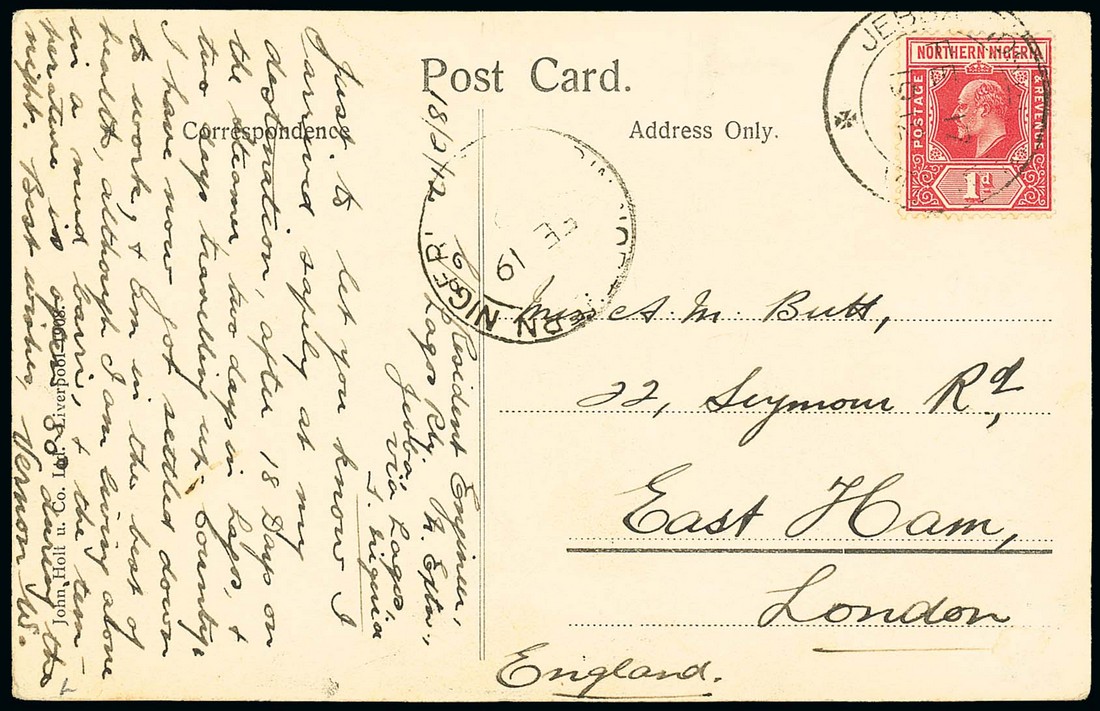 Post Card.
Correspondence.
Address Only.
NORTHERN NIGERIA
POSTAGE
& REVENUE
1d
JEBBA
FE
19
ERN NIGER
18/2/12
c/o Resident Engineer,
Lagos Rly. N. Extn.,
Jebba,
Via Lagos,
S. Nigeria
Just to let you know I
arrived safely at my
destination, after 18 Days on
the steamer, two days in Lagos, &
two days travelling up Country.
I have now got settled down
to work, & am in the best of
health, although I am living alone
in a mud barri, & the tem-
perature is over 80 during the
night. Best wishes, Vernon W.
John Holt u. Co. Ltd., Liverpool 1908.
Miss A. M. Butt,
22, Seymour Rd,
East Ham,
London
England.